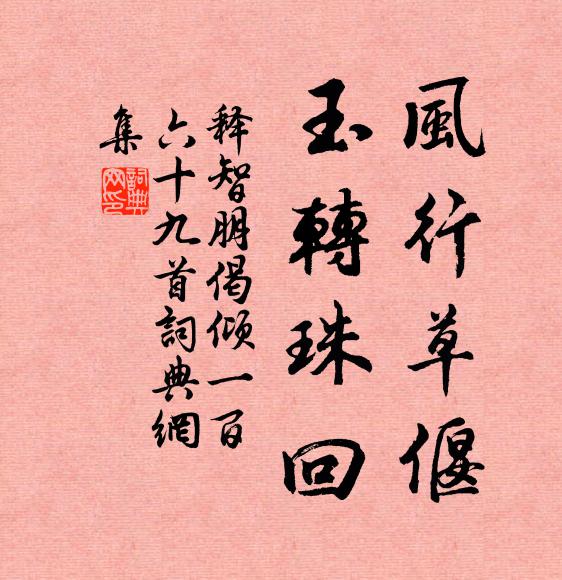 風行草偃
玉轉珠回
释智朋偈倾一百
六十九首詞典網
集
詞典
网印